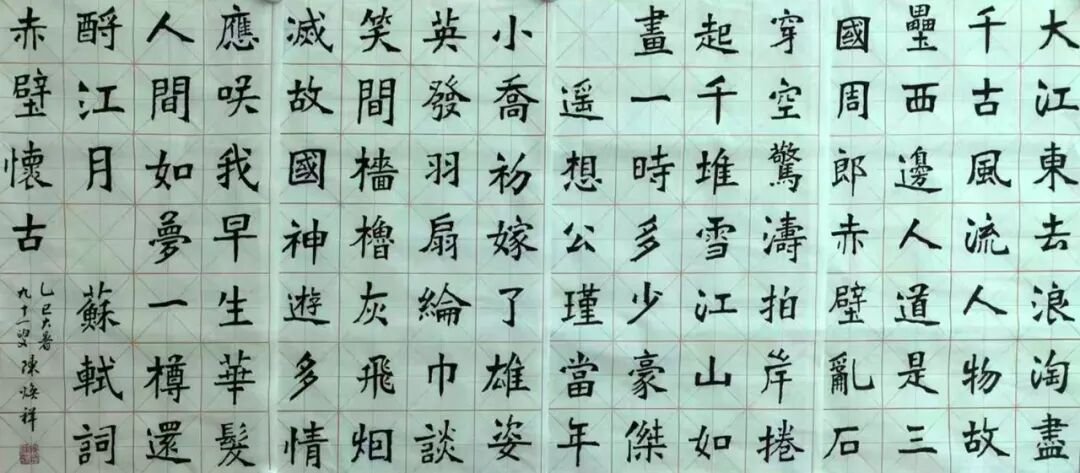 大江東去浪淘盡
千古風流人物故
壘西邊人道是三
國周郎赤壁亂石
穿空驚濤拍岸捲
起千堆雪江山如
畫一時多少豪傑
遥想公瑾當年
小喬初嫁了雄姿
英發羽扇綸巾談
笑間檣櫓灰飛烟
滅故國神遊多情
應咲我早生華髮
人間如夢一樽還
酹江月 蘇軾詞
赤壁懷古
乙巳大暑
九十一叟 陳焕祥